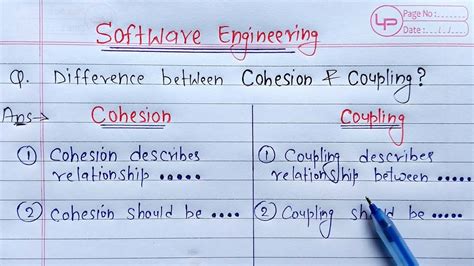 LP
Page No :
Date : ... / ... / ...
Software Engineering
Q. Difference between Cohesion & Coupling?
Ans→
Cohesion
① Cohesion describes
relationship .....
② Cohesion should be ....
Coupling
① Coupling describes
relationship between .....
② Coupling should be .....